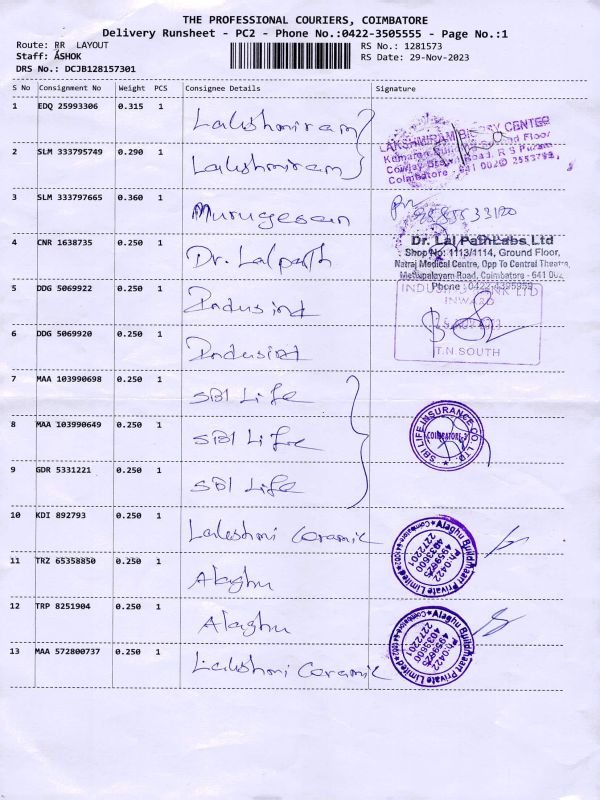 THE PROFESSIONAL COURIERS, COIMBATORE
Delivery Runsheet - PC2 - Phone No.:0422-3505555 - Page No.:1
Route: RR LAYOUT
RS No.: 1281573
Staff: ASHOK
RS Date: 29-Nov-2023
DRS No.: DCJB128157301
S No Consignment No Weight PCS Consignee Details Signature
1 EDQ 25993306 0.315 1 Lakshmiram
2 SLM 333795749 0.290 1 Lakshmiram
LAKSHMIRAM CENTRE
Floor
Road, R S Puram
Coimbatore - 641 002
3 SLM 333797665 0.360 1 Murugesan
4 CNR 1638735 0.250 1 Dr. Lalpath
Dr. Lal PathLabs Ltd
Shop No: 1113/1114, Ground Floor,
Natraj Medical Centre, Opp To Central Theatre,
Mettupalayam Road, Coimbatore - 641 002
Phone : 0422-4395959
5 DDG 5069922 0.250 1 Indusind
6 DDG 5069920 0.250 1 Indusind
INWARD
T.N.SOUTH
7 MAA 103990698 0.250 1 SBI Life
8 MAA 103990649 0.250 1 SBI Life
SBI LIFE INSURANCE CO. LTD.
COIMBATORE-2
9 GDR 5331221 0.250 1 SBI Life
10 KDI 892793 0.250 1 Lakshmi Ceramic
11 TRZ 65358850 0.250 1 Alaghu
Alaghu BuildMaart Private Limited
Ph:0422
4959925
4033600
2272201
12 TRP 8251904 0.250 1 Alaghu
13 MAA 572800737 0.250 1 Lakshmi Ceramic
Alaghu BuildMaart Private Limited
Ph:0422
4959925
4033600
2272201